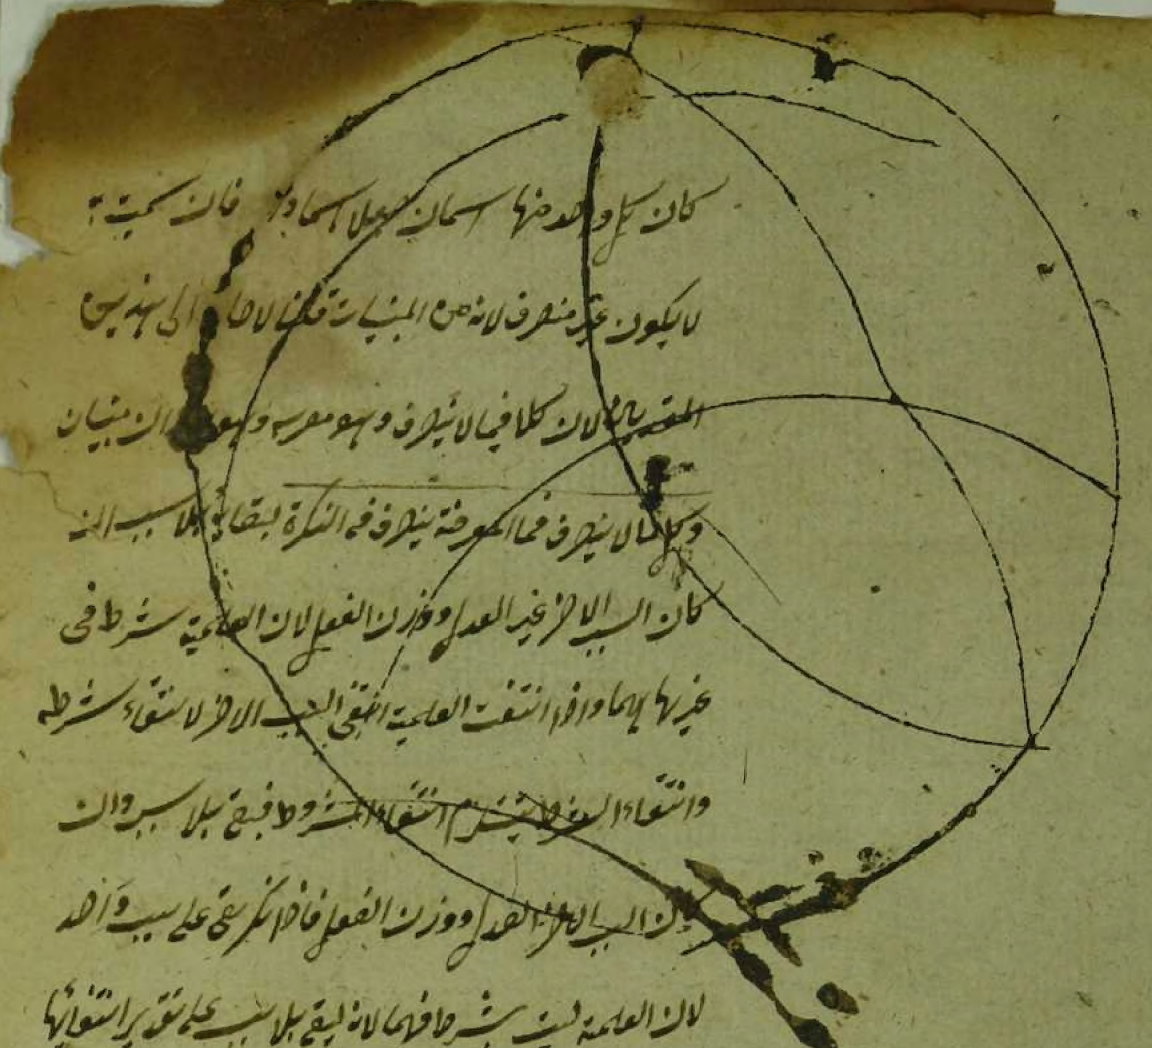 كان كل واحد منها اسمان جعلا اسما واحدا فان سميت به
لا يكون غير منصرف لانه من المبنيات قلنا لا حاجة الى هذين
لان كلما فيما لا ينصرف وهو معرب مبنيان
وكل ما لا ينصرف في المعرفة ينصرف في النكرة لبقائه بلا سبب ان
كان السبب الاخر غير العدل ووزن الفعل لان العلمية شرط في
غيرهما واذا انتفت العلمية انتفى السبب الاخر لانتفاء شرطه
وانتفاء الشرط يستلزم انتفاء المشروط فيبقى بلا سبب وان
كان السبب الاخر العدل ووزن الفعل فاذا نكر بقي على سبب واحد
لان العلمية ليست بشرط فيهما لانه ليبقى بلا سبب على تقدير انتفائها